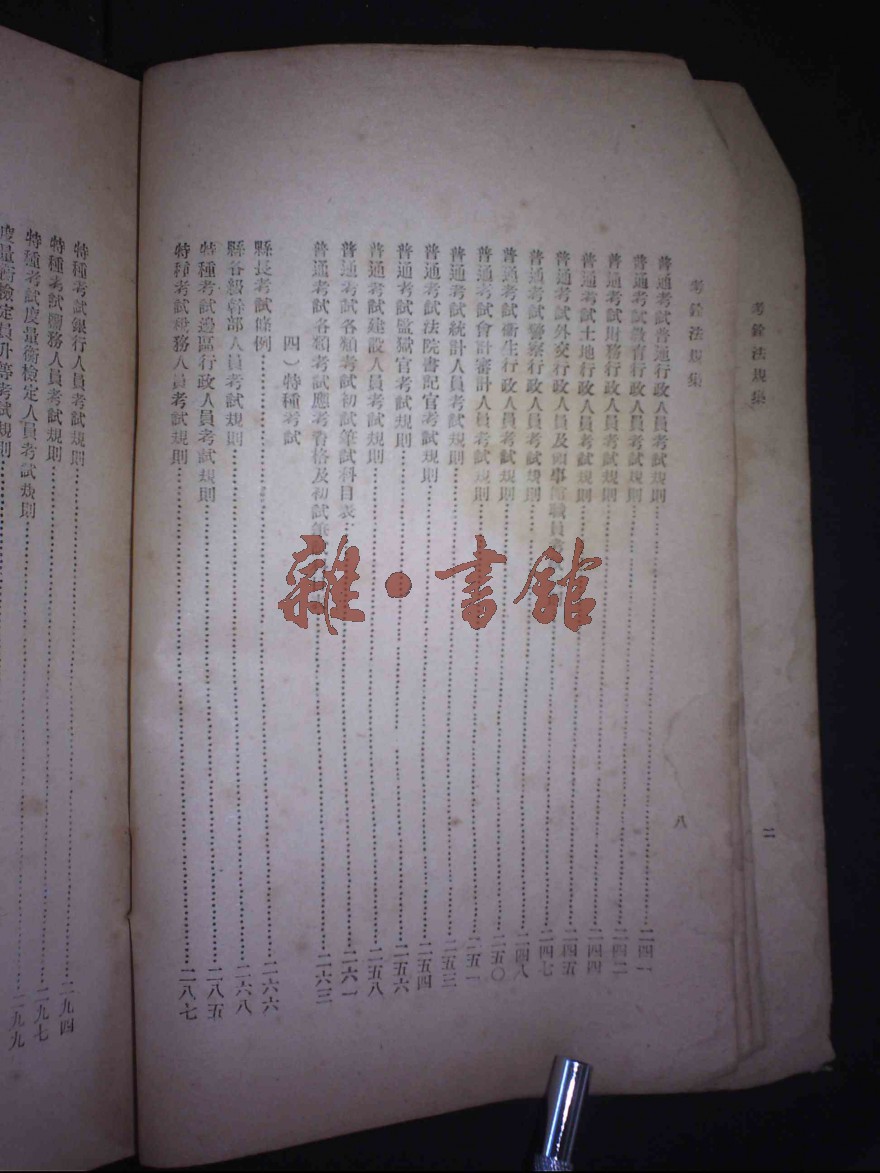 考銓法規集
二
考銓法規集
八
普通考試普通行政人員考試規則……二四一
普通考試教育行政人員考試規則……二四二
普通考試財務行政人員考試規則……二四三
普通考試土地行政人員考試規則……二四四
普通考試外交行政人員及領事館職員考……二四五
普通考試警察行政人員考試規則……二四七
普通考試衛生行政人員考試規則……二四八
普通考試會計審計人員考試規則……二五〇
普通考試統計人員考試規則……二五一
普通考試法院書記官考試規則……二五三
普通考試監獄官考試規則……二五四
普通考試建設人員考試規則……二五六
普通考試各類考試初試筆試科目表……二五八
普通考試各類考試應考資格及初試筆……二六一
二六三
四）特種考試
縣長考試條例……二六六
縣各級幹部人員考試規則……二六八
特種考試邊區行政人員考試規則……二八五
特種考試稅務人員考試規則……二八七
特種考試銀行人員考試規則
特種考試 務人員考試規則……二九四
特種考試度量衡檢定人員考試規則……二九七
度量衡檢定員升等考試規則……二九九
雜·書館